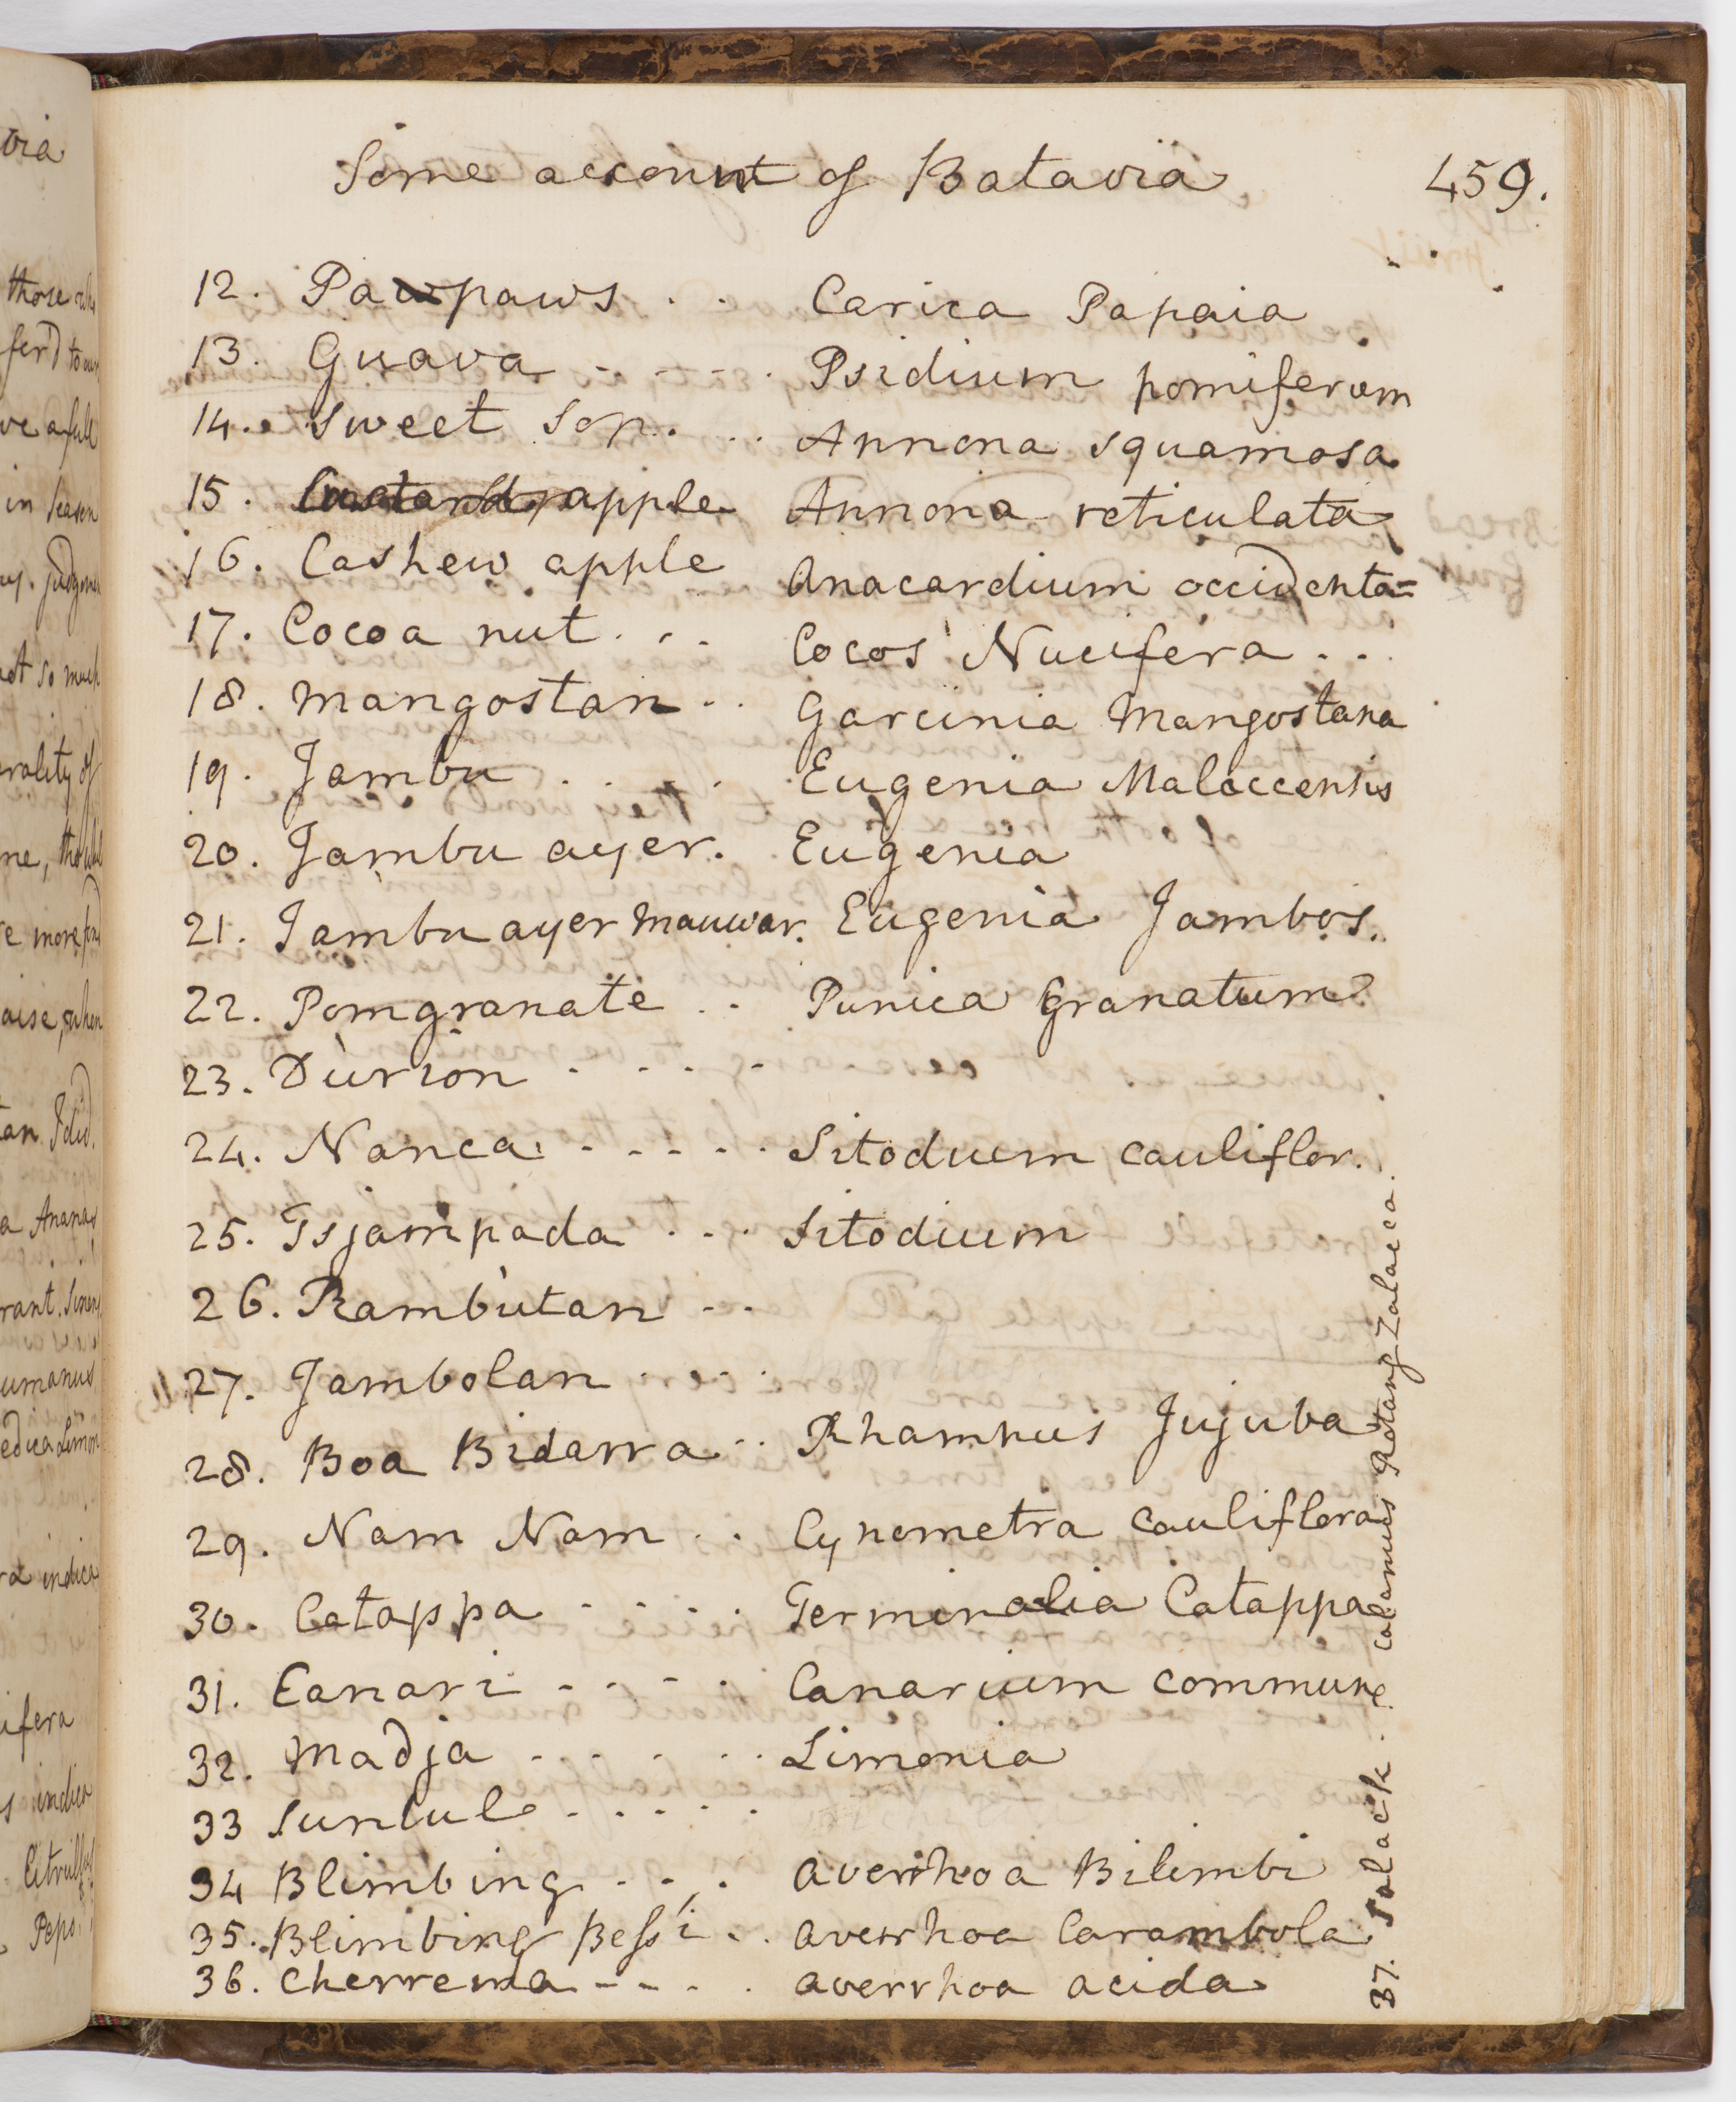 Some account of Batavia 459.
12. Pawpaws . . Carica Papaia
13. Guava - - - - . Psidium pomiferum
14. Sweet Sop. . . . Annona squamosa
15. Custard apple Annona reticulata
16. Cashew apple Anacardium occidenta=
17. Cocoa nut . . . Cocos Nucifera . . .
18. Mangostan . . Garcinia Mangostana
19. Jambu . . . . . Eugenia Malaccensis
20. Jambu ayer. Eugenia
21. Jambu ayer Mauwar. Eugenia Jambos.
22. Pomgranate . . Punica Granatum
23. Durion . . - . -
24. Nanca . - - - - . Sitodium cauliflor.
25. Tsjampada . . . Sitodium
26. Rambutan - -
27. Jambolan . . . .
28. Boa Bidarra . . Rhamnus Jujuba
29. Nam Nam . . Cynometra cauliflora
30. Catappa - - . . Terminalia Catappa
31. Canari - - - - . Canarium commune
32. Madja . . . . . . Limonia
33 Suntul . . . . .
34 Blimbing . . . Averrhoa Bilimbi
35. Blimbing Bessi . . Averrhoa Carambola
36. Cherrema - - . . Averrhoa acida
37. Salack . Calamus Rotang Zalacca.
via
those
ferd to our
ve a full
in season
not so much
rality of
e more fond
aise, when
tan I did.
a Ananas
umanus
edica Limon
ra indica
ifera
s indica
Pepo.